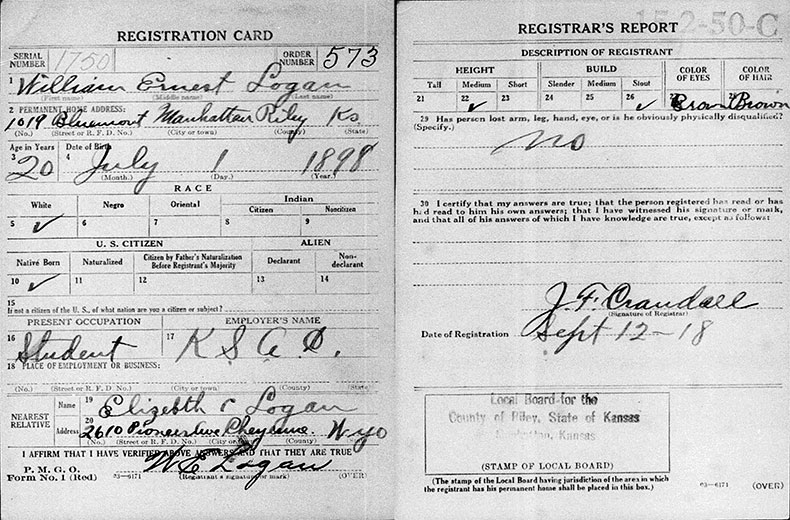 REGISTRATION CARD
SERIAL NUMBER 1750 ORDER NUMBER 573
1 William Ernest Logan
(First name) (Middle name) (Last name)
2 PERMANENT HOME ADDRESS:
1019 Bluemont Manhattan Riley Ks.
(No.) (Street or R. F. D. No.) (City or town) (County) (State)
Age in Years Date of Birth
3 20 4 July 1 1898
(Month.) (Day.) (Year.)
RACE
White Negro Oriental Indian
Citizen Noncitizen
5 ✓ 6 7 8 9
U. S. CITIZEN ALIEN
Native Born Naturalized Citizen by Father's Naturalization Before Registrant's Majority Declarant Non-declarant
10 ✓ 11 12 13 14
15
If not a citizen of the U. S., of what nation are you a citizen or subject?
PRESENT OCCUPATION EMPLOYER'S NAME
16 Student 17 K S A C.
18 PLACE OF EMPLOYMENT OR BUSINESS:
(No.) (Street or R. F. D. No.) (City or town) (County) (State)
NEAREST RELATIVE Name 19 Elizebth Logan
Address 20 2610 Pioneer Ave Cheyenne Wyo
(No.) (Street or R. F. D. No.) (City or town) (County) (State)
I AFFIRM THAT I HAVE VERIFIED ABOVE ANSWERS AND THAT THEY ARE TRUE
P. M. G. O.
Form No. 1 (Red) 03—6171 W E Logan (Registrant's signature or mark) (OVER)
15-2-50-C
REGISTRAR'S REPORT
DESCRIPTION OF REGISTRANT
HEIGHT BUILD COLOR OF EYES COLOR OF HAIR
Tall Medium Short Slender Medium Stout
21 22 ✓ 23 24 25 26 ✓ 27 Brown 28 Brown
29 Has person lost arm, leg, hand, eye, or is he obviously physically disqualified?
(Specify.) no
30 I certify that my answers are true; that the person registered has read or has
had read to him his own answers; that I have witnessed his signature or mark,
and that all of his answers of which I have knowledge are true, except as follows:
J. F. Crandall
(Signature of Registrar)
Date of Registration Sept 12-18
Local Board for the
County of Riley, State of Kansas
Manhattan, Kansas
(STAMP OF LOCAL BOARD)
(The stamp of the Local Board having jurisdiction of the area in which
the registrant has his permanent home shall be placed in this box.)
03—6171 (OVER)